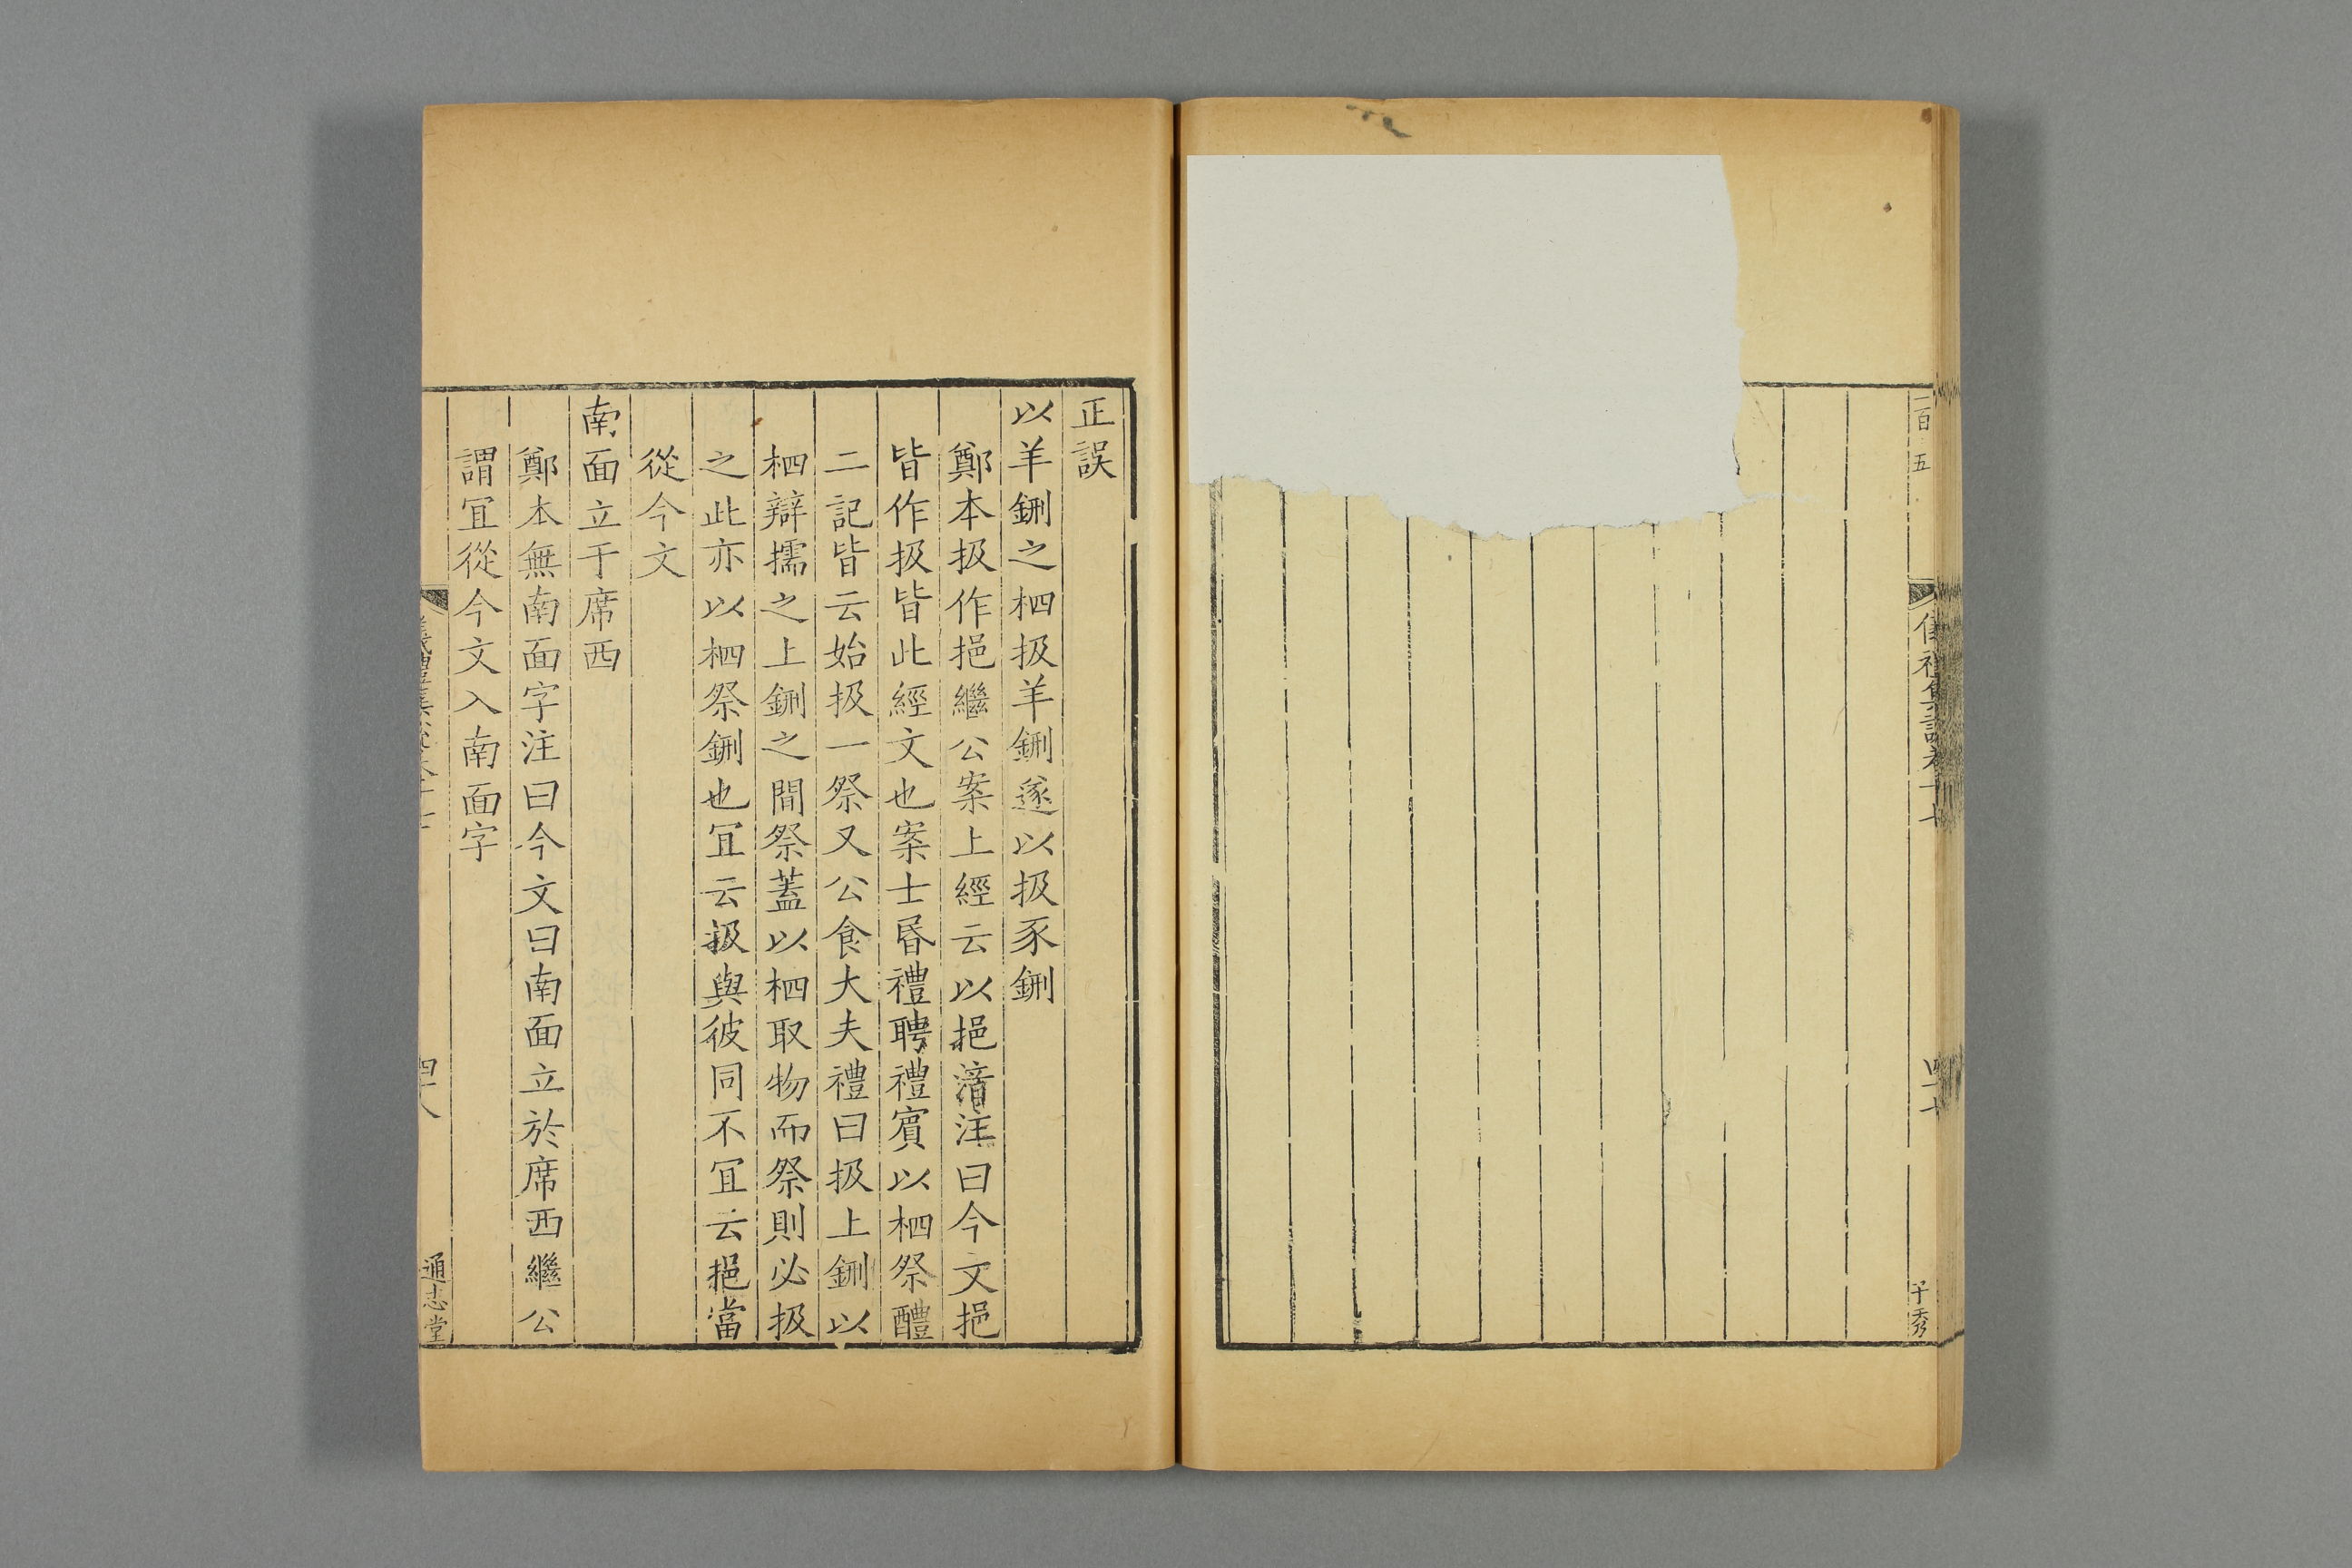 二百五
儀禮集說卷十七
四十七
子秀
正誤
以羊鉶之柶扱羊鉶遂以扱豕鉶
鄭本扱作挹繼公案上經云以挹湆注曰今文挹
皆作扱皆此經文也案士昬禮聘禮賓以柶祭醴
二記皆云始扱一祭又公食大夫禮曰扱上鉶以
柶辯擩之上鉶之間祭蓋以柶取物而祭則必扱
之此亦以柶祭鉶也冝云扱與彼同不冝云挹當
從今文
南面立于席西
鄭本無南面字注曰今文曰南面立於席西繼公
謂冝從今文入南面字
儀禮集說卷十七
四十八
通志堂